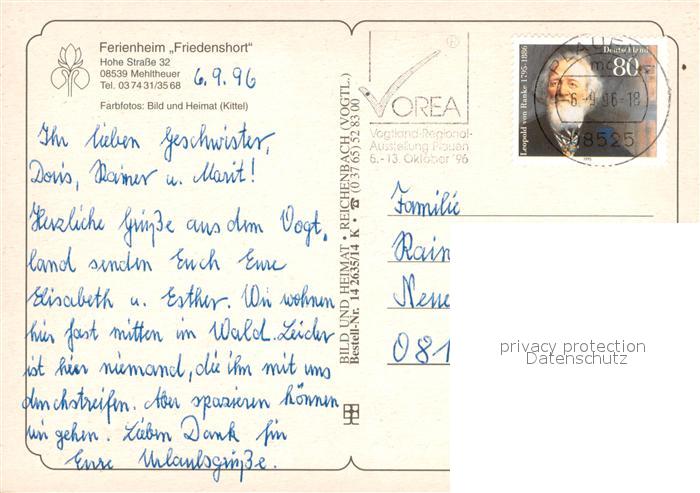 Ferienheim „Friedenshort"
Hohe Straße 32
08539 Mehltheuer
Tel. 03 74 31/35 68
6.9.96
Farbfotos: Bild und Heimat (Kittel)
Ihr lieben Geschwister,
Doris, Rainer u. Marit!
Herzliche Grüße aus dem Vogt,
land senden Euch Eure
Elisabeth u. Esther. Wir wohnen
hier fast mitten im Wald. Leider
ist hier niemand, die ihn mit uns
durchstreifen. Aber spazieren können
wir gehen. Lieben Dank für
Eure Urlaubsgrüße.
BILD UND HEIMAT • REICHENBACH (VOGTL.)
Bestell-Nr. 14 2635/14 K • ☎ (0 37 65) 52 83 00
VOREA
®
Vogtland-Regional-
Ausstellung Plauen
6.-13. Oktober '96
Leopold von Ranke 1795-1886
Deutschland
80
1995
PLAUEN
-6.-9.96-18
08525
Familie
Rain
Neue
081
privacy protection
Datenschutz